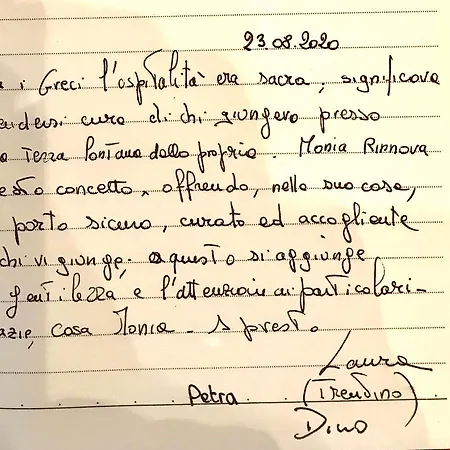 23.08.2020
i Greci l'ospitalità era sacra, significava
endersi cura di chi giungeva presso
Terra lontana dalla propria. Monia Rinnova
esto concetto, offrendo, nella sua casa,
porto sicuro, curato ed accogliente
chi vi giunge. a questo si aggiunge
gentilezza e l'attenzione ai particolari-
azie, casa Monia - A presto
Laura
Petra (Trentino)
Dino